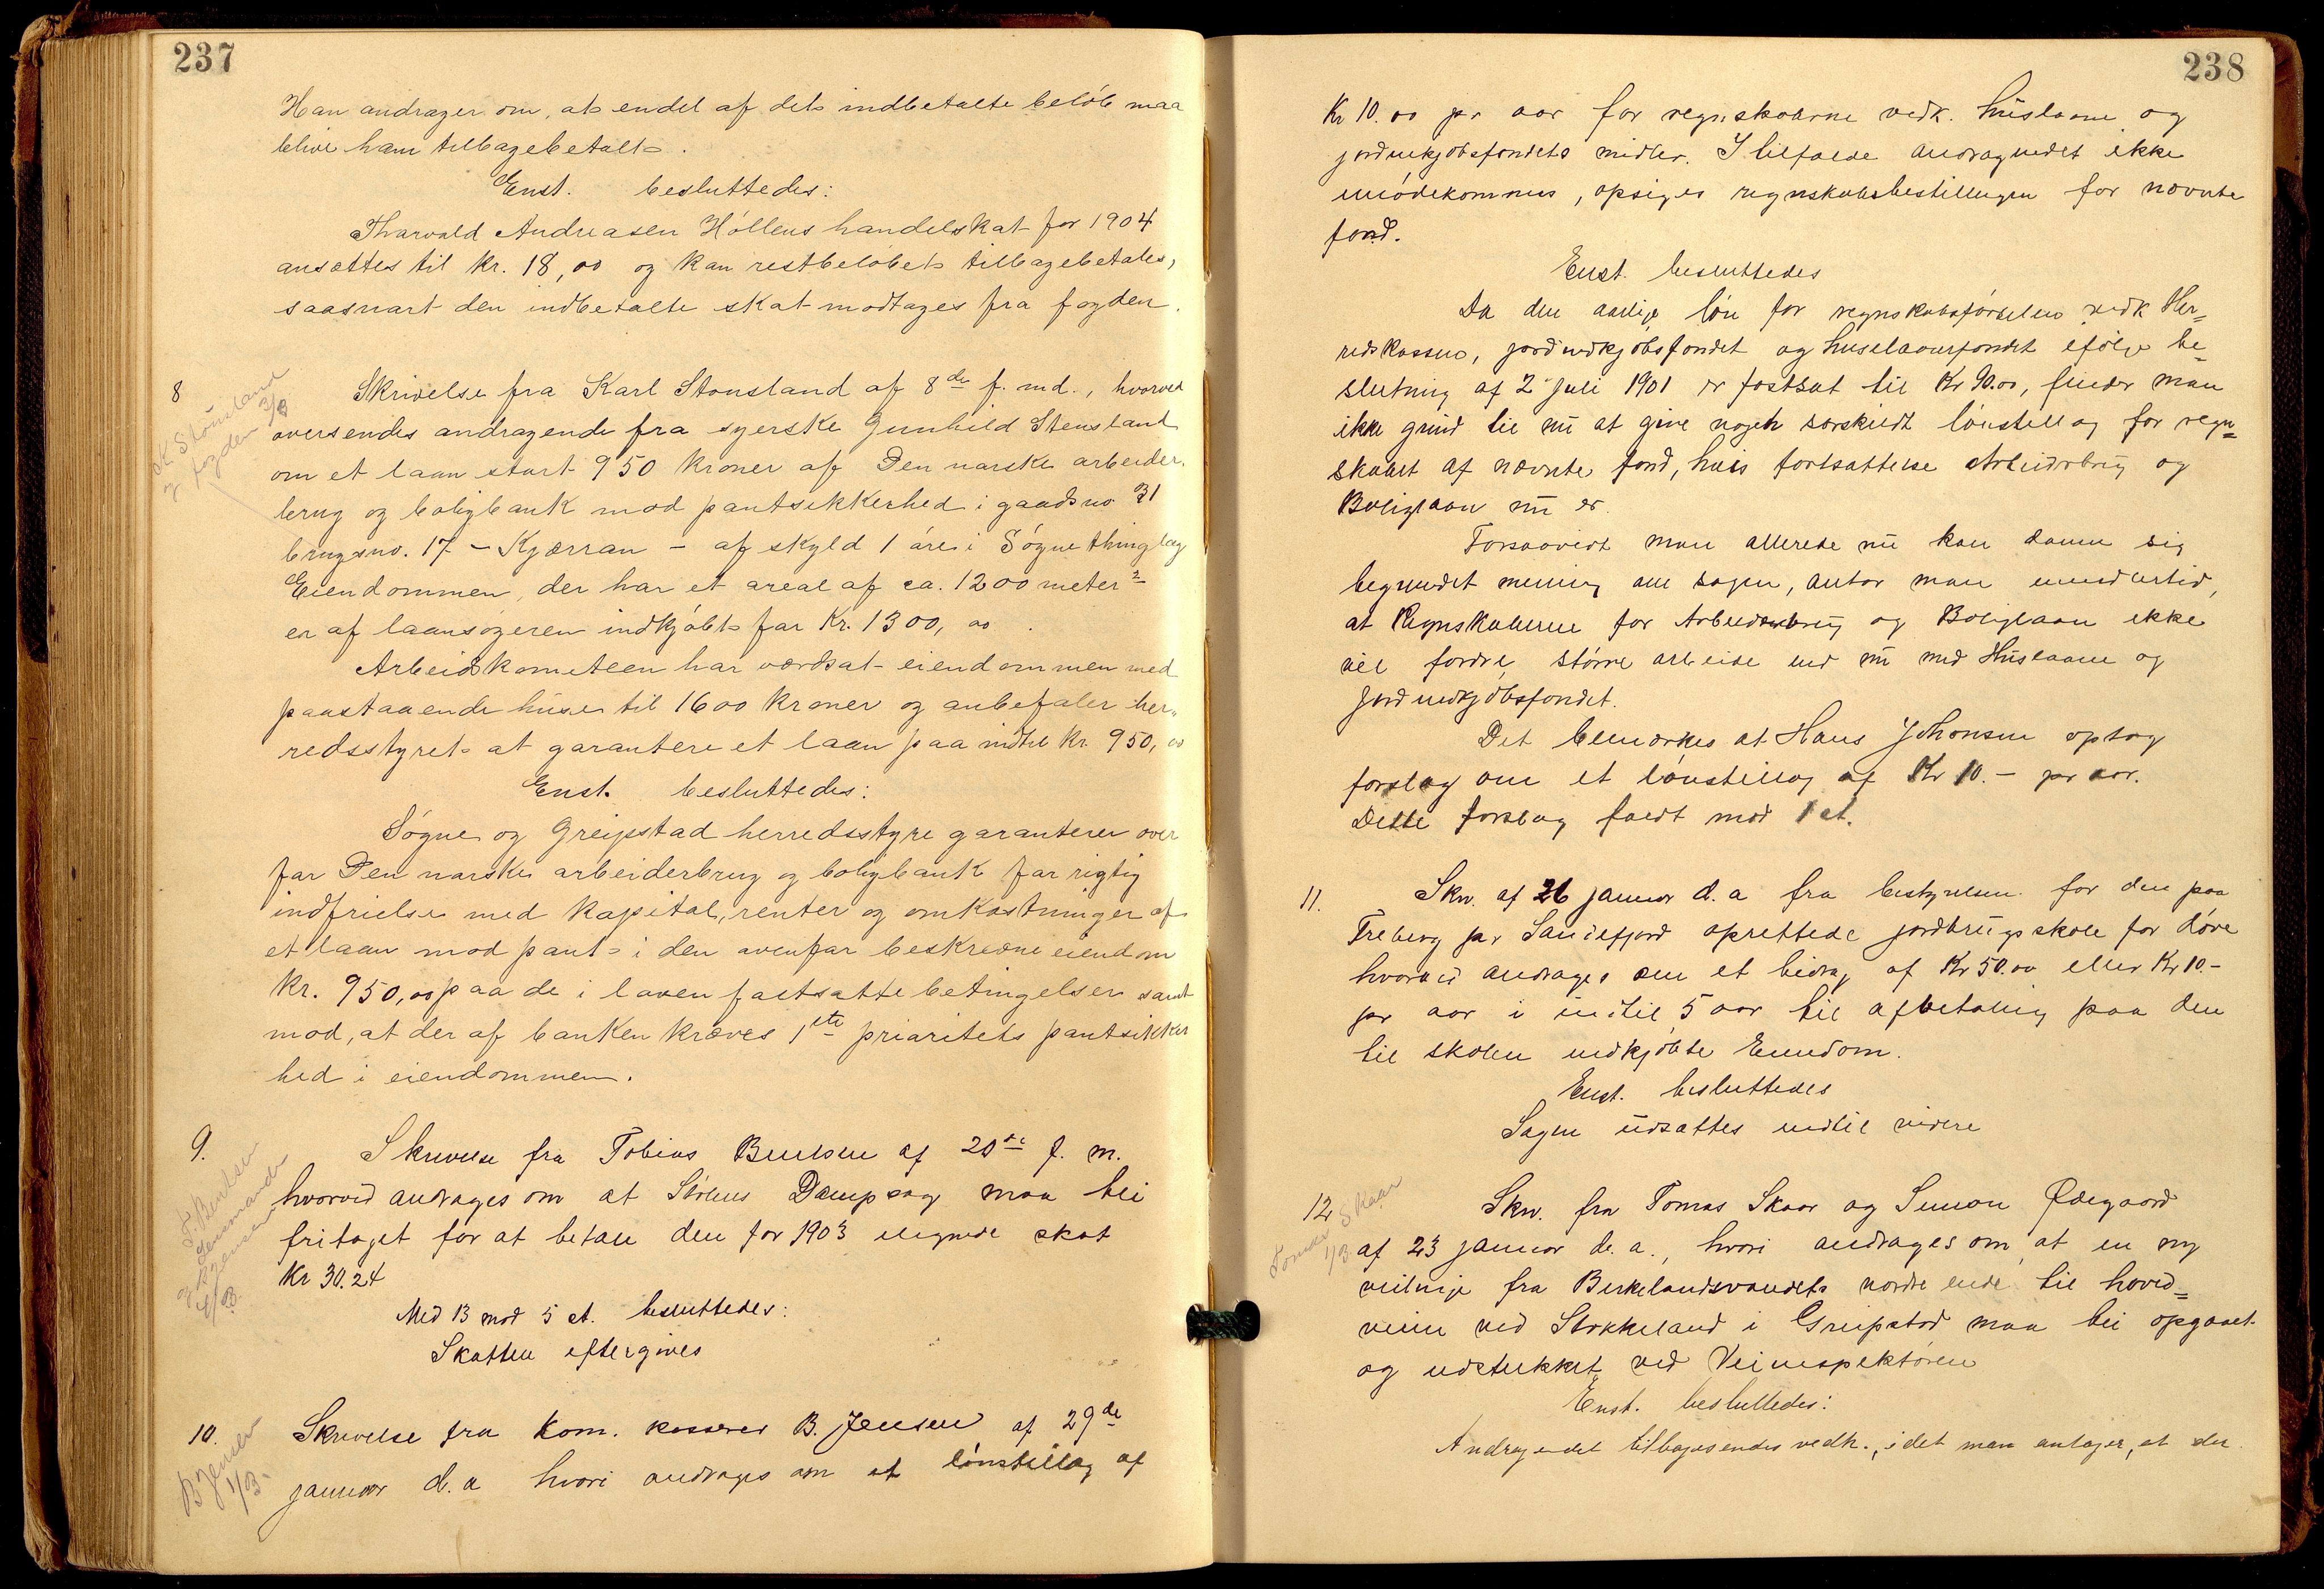 237
Han andrager om, at endel af det indbetalte beløb maa
blive ham tilbagebetalt.
Enst. besluttedes:
Thorvald Andreasen Hóllens handelskat for 1904
ansættes til kr. 18,00 og kan restbeløbet tilbagebetales,
saasnart den indbetalte skat modtages fra fogden.
8
K Stousland
og fogden 3/3
Skrivelse fra Karl Stousland af 8de f. md., hvorved
oversendes andragende fra syerske Gunhild Stensland
om et laan stort 950 kroner af Den norske arbeider-
brug og boligbank mod pantsikkerhed i gaardsno 31
brugsno. 17 – Kjærran – af skyld 1 øre i Søgne thinglag
Eiendommen, der har et areal af ca. 1200 meter2
er af laansøgeren indkjøbt for Kr. 1300,00.
Arbeidskometeen har værdsat eiendommen med
paastaaende huse til 1600 kroner og anbefaler her-
redsstyret at garantere et laan paa indtil kr. 950,00
Enst. besluttedes:
Søgne og Greipstad herredsstyre garanterer over
for Den norske arbeiderbrug og boligbank for rigtig
indfrielse med kapital, renter og omkostninger af
et laan mod pant i den ovenfor beskrevne eiendom
kr. 950,00 paa de i loven fastsatte betingelser samt
mod, at der af banken kræves 1ste prioritets pantsikker
hed i eiendommen.
9.
T. Bentsen
og lensmanden
Skrivelse fra Tobias Bentsen af 20de f. m.
hvorved andrages om at Stólens Dampsag maa bli
fritaget for at betale den for 1903 ilignede skat
Kr 30.24
Med 13 mod 5 st. besluttedes:
Skatten eftergives
10.
B Jensen
1/3
Skrivelse fra Kom. kasserer B. Jensen af 29de
januar d. a hvori andrages om et lønstillæg af
238
Kr 10.00 pr aar for regnskaberne vedk. huslaane og
jordindkjøbsfondets midler. I tilfælde andragendet ikke
imødekommes, opsiges regnskabsbestillingen for nævnte
fond.
Enst. besluttedes
Da den aarlige løn for regnskabsførselen vedk Her=
redskassen, jordindkjøbsfondet og huselaanefondet ifølge be=
slutning af 2 juli 1901 er fastsat til Kr 90.00, finder man
ikke grund til nu at give nogen særskildt lønstillæg for regn=
skabet af nævnte fond, hvis fortsættelse Arbeiderbrug og
Boliglaan nu er.
Forsaavidt man allerede nu kan danne sig
begrundet mening om sagen, antar man imidlertid,
at Regnskaberne for Arbeiderbrug og Boliglaan ikke
vil fordre større arbeide end nu med Huslaane og
Jordindkjøbsfondet.
Det bemærkes at Hans Johonsen optog
forslag om et lønstillæg af Kr 10.– pr aar.
Dette forslag faldt mod 1 st.
11.
Skr. af 26 januar d. a fra bestyrelsen for den paa
Treberg pr Sandefjord oprettede jordbrugsskole for døve
hvorved andrages om et bidrag af Kr 50.00 eller Kr 10.–
pr aar i indtil 5 aar til afbetaling paa den
til skolen indkjøbte Eiendom.
Enst. besluttedes
Sagen udsættes indtil videre
12
Tomas Skaar
1/3
Skr. fra Tomas Skaar og Simon Ødegaard
af 23 januar d. a., hvori andrages om at en ny
veilinje fra Birkelandsvandets nordre ende til hoved=
veien ved Stokkeland i Greipstad maa bli opgaaet
og udstukket ved Veiinspektøren
Enst. besluttedes:
Andragendet tilbagesendes vedk., idet man antager, at der